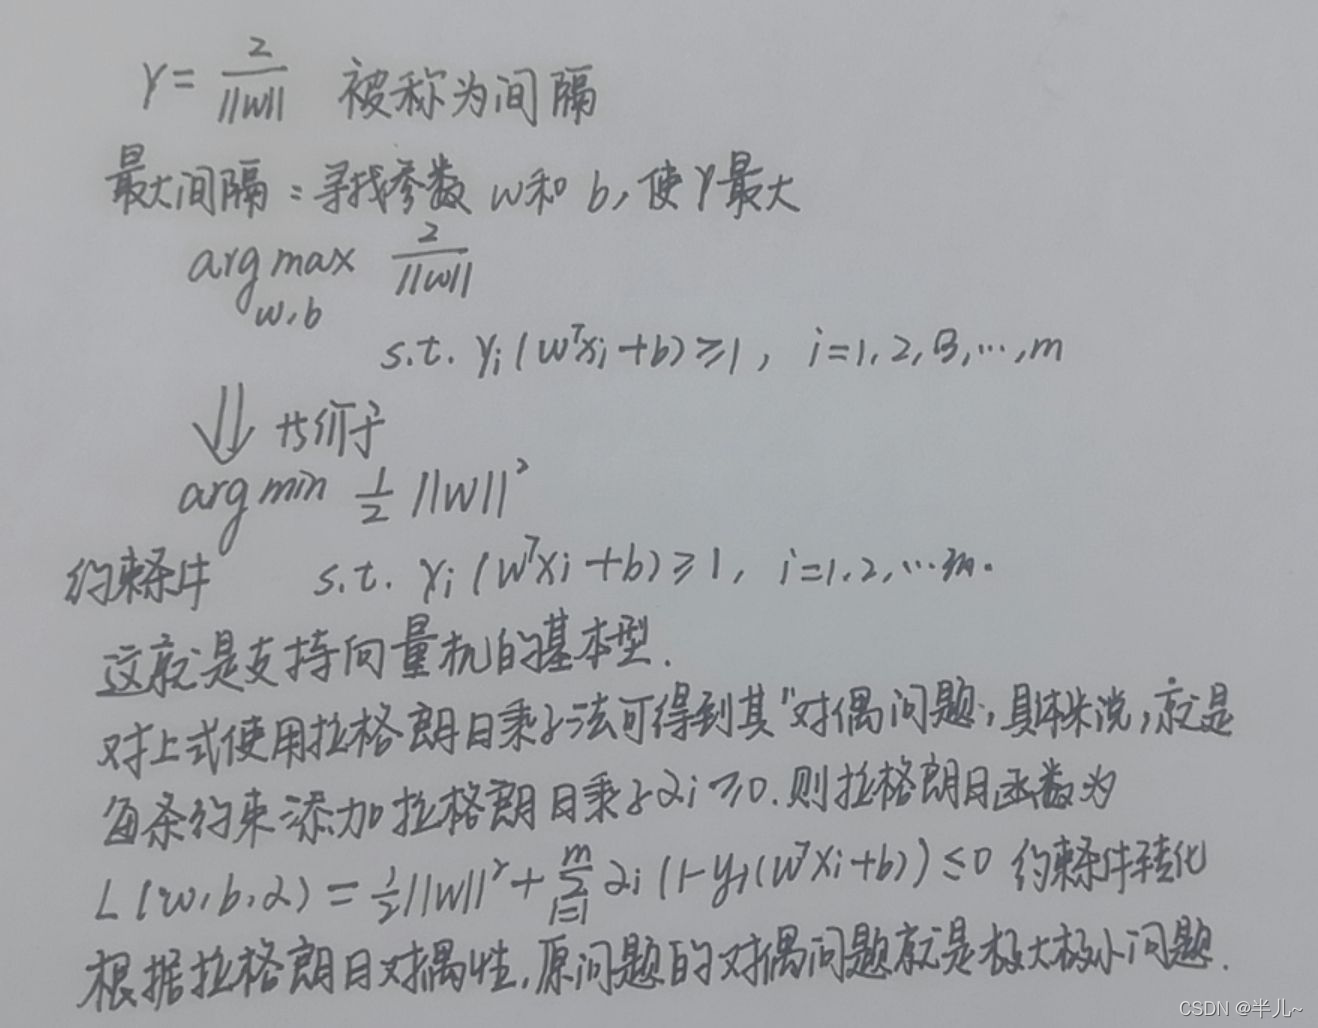 γ = 2/||w|| 被称为间隔
最大间隔：寻找参数 w和 b，使γ最大
arg max 2/||w||
w,b
s.t. yᵢ(wᵀxᵢ+b)≥1, i=1,2,3,…,m
⇓ 等价于
arg min 1/2 ||w||²
约束条件 s.t. yᵢ(wᵀxᵢ+b)≥1, i=1,2,…m.
这就是支持向量机的基本型.
对上式使用拉格朗日乘子法可得到其"对偶问题,具体来说,就是
每条约束添加拉格朗日乘子αᵢ≥0.则拉格朗日函数为
L(w,b,α) = 1/2||w||² + Σᵢ₌₁ᵐ αᵢ(1-yᵢ(wᵀxᵢ+b))≤0 约束条件转化
根据拉格朗日对偶性,原问题的对偶问题就是极大极小问题.
CSDN @半儿~